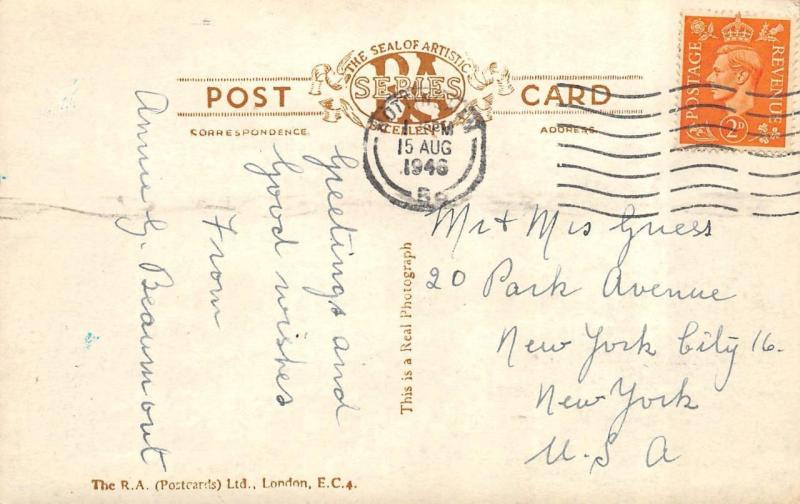 POST
CARD
THE SEAL OF ARTISTIC
RA
SERIES
EXCELLE
CORRESPONDENCE
ADDRESS
PM
15 AUG
1946
POSTAGE
REVENUE
2D
Greetings and
Good wishes
From
Annie G. Beaumont
This is a Real Photograph
Mr & Mrs Guess
20 Park Avenue
New York City 16.
New York
U. S A
The R.A. (Postcards) Ltd., London, E.C.4.